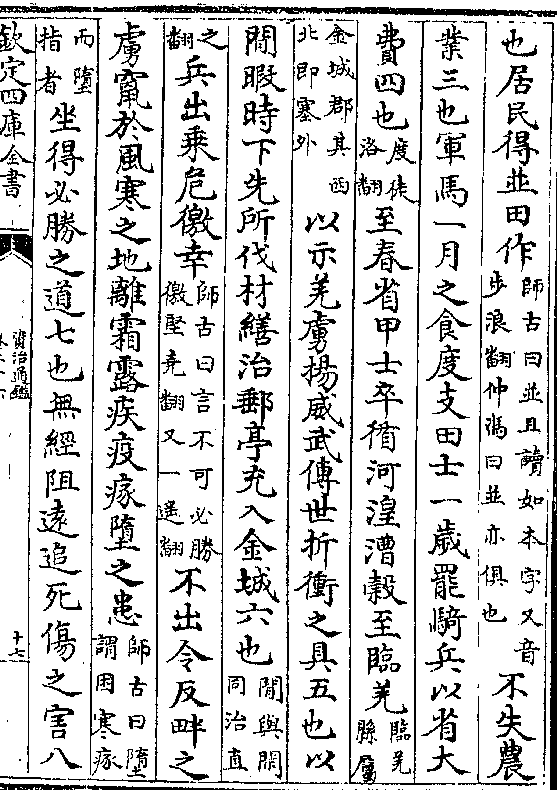 也居民得並田作師古曰並且讀如本字又音步浪翻仲馮曰並亦俱也不失農
業三也軍馬一月之食度支田士一歲罷騎兵以省大
費四也度徒洛翻至春省甲士卒循河湟漕穀至臨羌臨羌縣屬
金城郡其西北即塞外以示羌虜揚威武傳世折衝之具五也以
閒暇時下先所伐材繕治郵亭充入金城六也閒與閑同治直
之翻兵出乗危徼幸師古曰言不可必勝徼堅堯翻又一遥翻不出令反畔之
虜竄於風寒之地離霜露疾疫瘃墮之患師古曰墮謂困寒瘃
而墮指者坐得必勝之道七也無經阻遠追死傷之害八
欽定四庫全書
資治通鑑
十七